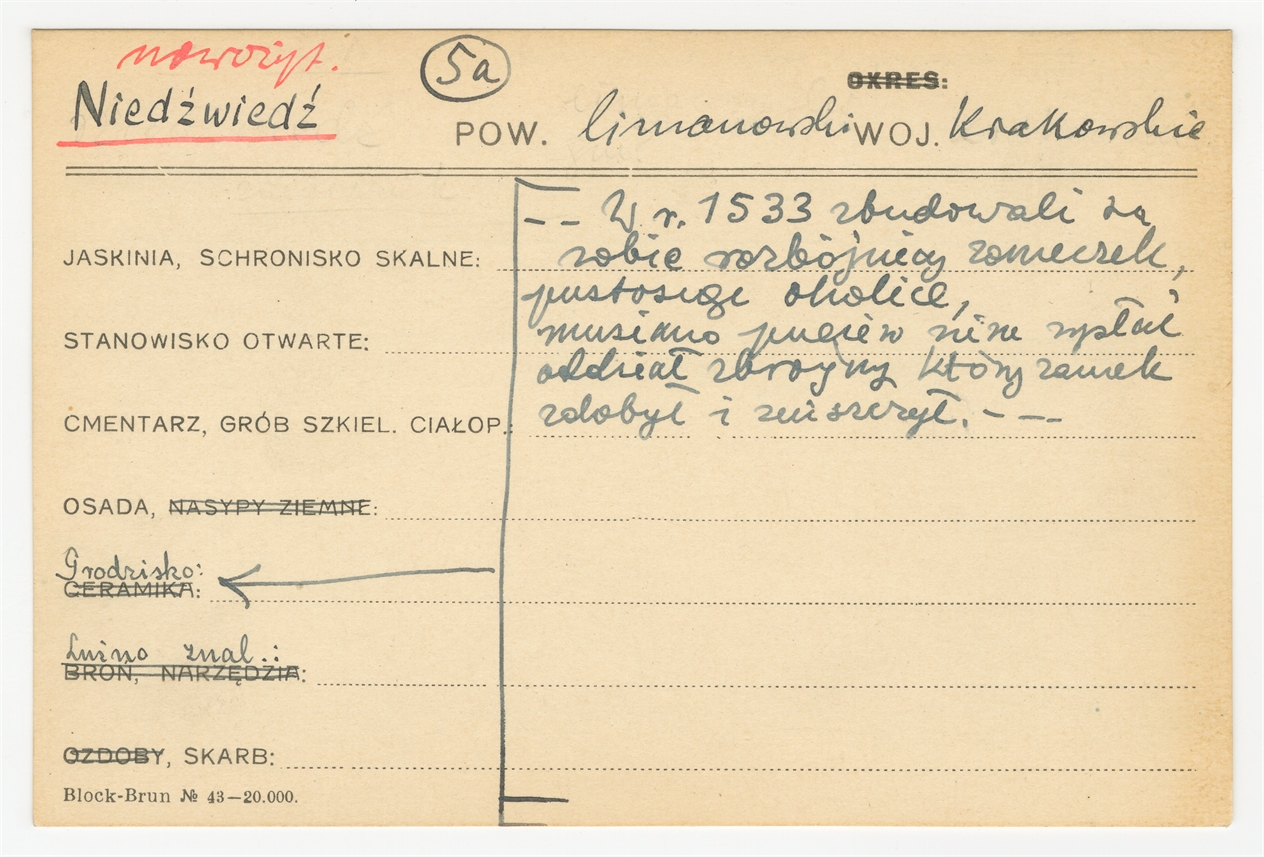 nowożyt.
5a
Niedźwiedź
OKRES:
POW. limanowski WOJ. Krakowskie
-- W r. 1533 zbudowali tu
sobie rozbójnicy zameczek,
JASKINIA, SCHRONISKO SKALNE:
pustosząc okolicę,
musiano przeciw nim wysłać
STANOWISKO OTWARTE:
oddział zbrojny który zamek
zdobył i zniszczył. ---
CMENTARZ, GRÓB SZKIEL. CIAŁOP.:
OSADA, NASYPY ZIEMNE:
Grodzisko:
CERAMIKA:
Luźno znal.:
BROŃ, NARZĘDZIA:
OZDOBY, SKARB:
Block-Brun № 43—20.000.